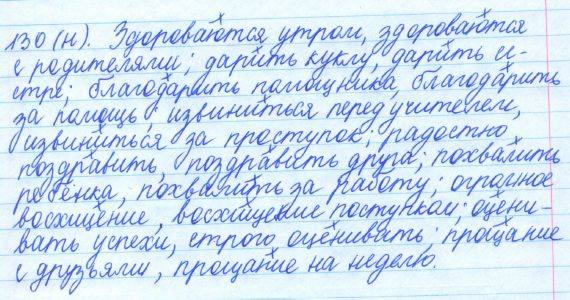 130 (н). Здороваются утром, здороваются
с родителями; дарить куклу, дарить се-
стре; благодарить помощника, благодарить
за помощь; извиниться перед учителем,
извиниться за проступок; радостно
поздравить, поздравить друга; похвалить
ребёнка, похвалить за работу; огромное
восхищение, восхищение поступком; оцени-
вать успехи, строго оценивать; прощание
с друзьями, прощание на неделю.